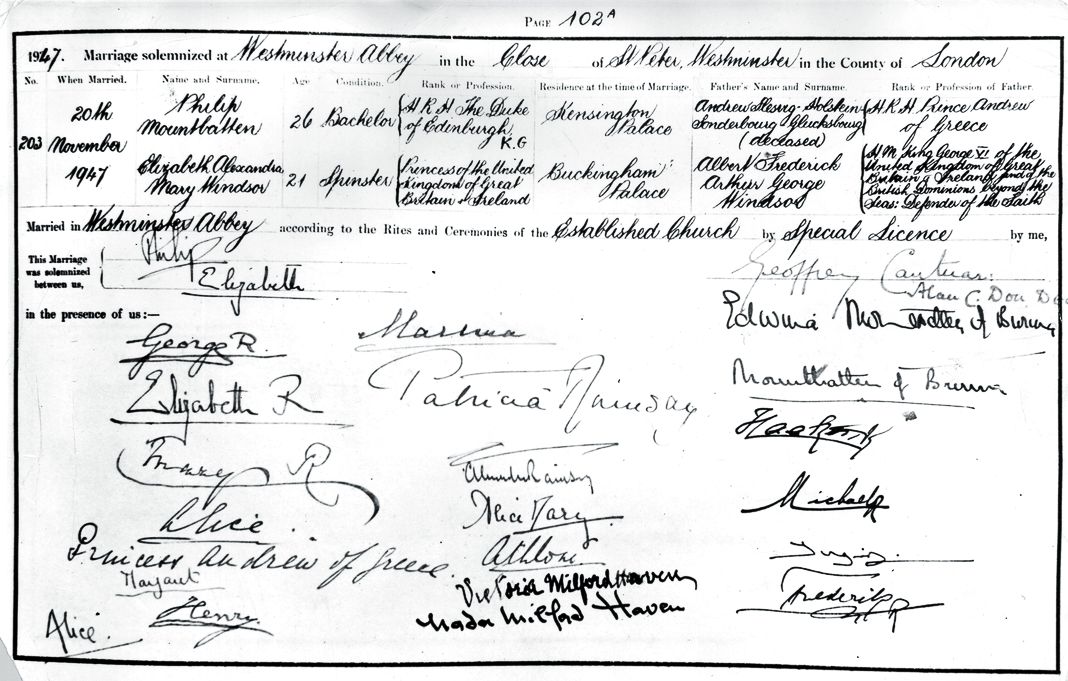 PAGE 102A
1947. Marriage solemnized at Westminster Abbey in the Close of St Peter, Westminster in the County of London
No. When Married. Name and Surname. Age Condition. Rank or Profession. Residence at the time of Marriage. Father's Name and Surname. Rank or Profession of Father.
203
20th
November
1947
Philip
Mountbatten
26
Bachelor
H.R.H The Duke
of Edinburgh,
K.G
Kensington
Palace
Andrew Slesvig-Holstein
Sonderbourg Glucksbourg
(deceased)
H.R.H Prince Andrew
of Greece
Elizabeth Alexandra
Mary Windsor
21
Spinster
Princess of the United
Kingdom of Great
Britain & Ireland
Buckingham
Palace
Albert Frederick
Arthur George
Windsor
H.M. King George VI of the
United Kingdom of Great
Britain & Ireland and of the
British Dominions beyond the
Seas: Defender of the Faith
Married in Westminster Abbey according to the Rites and Ceremonies of the Established Church by Special Licence by me,
This Marriage
was solemnized
between us,
Philip
Elizabeth
Geoffrey Cantuar:
Alan C. Don
in the presence of us:—
George R.
Elizabeth R
Mary R
Alice.
Princess Andrew of Greece
Margaret
Henry.
Alice.
Marina
Patricia Ramsay
Alexander Ramsay
Alice Mary
Athlone
Victoria Milford Haven
Nada Milford Haven
Edwina Mountbatten of Burma
Mountbatten of Burma
Haakon R
Michael R
Frederik R